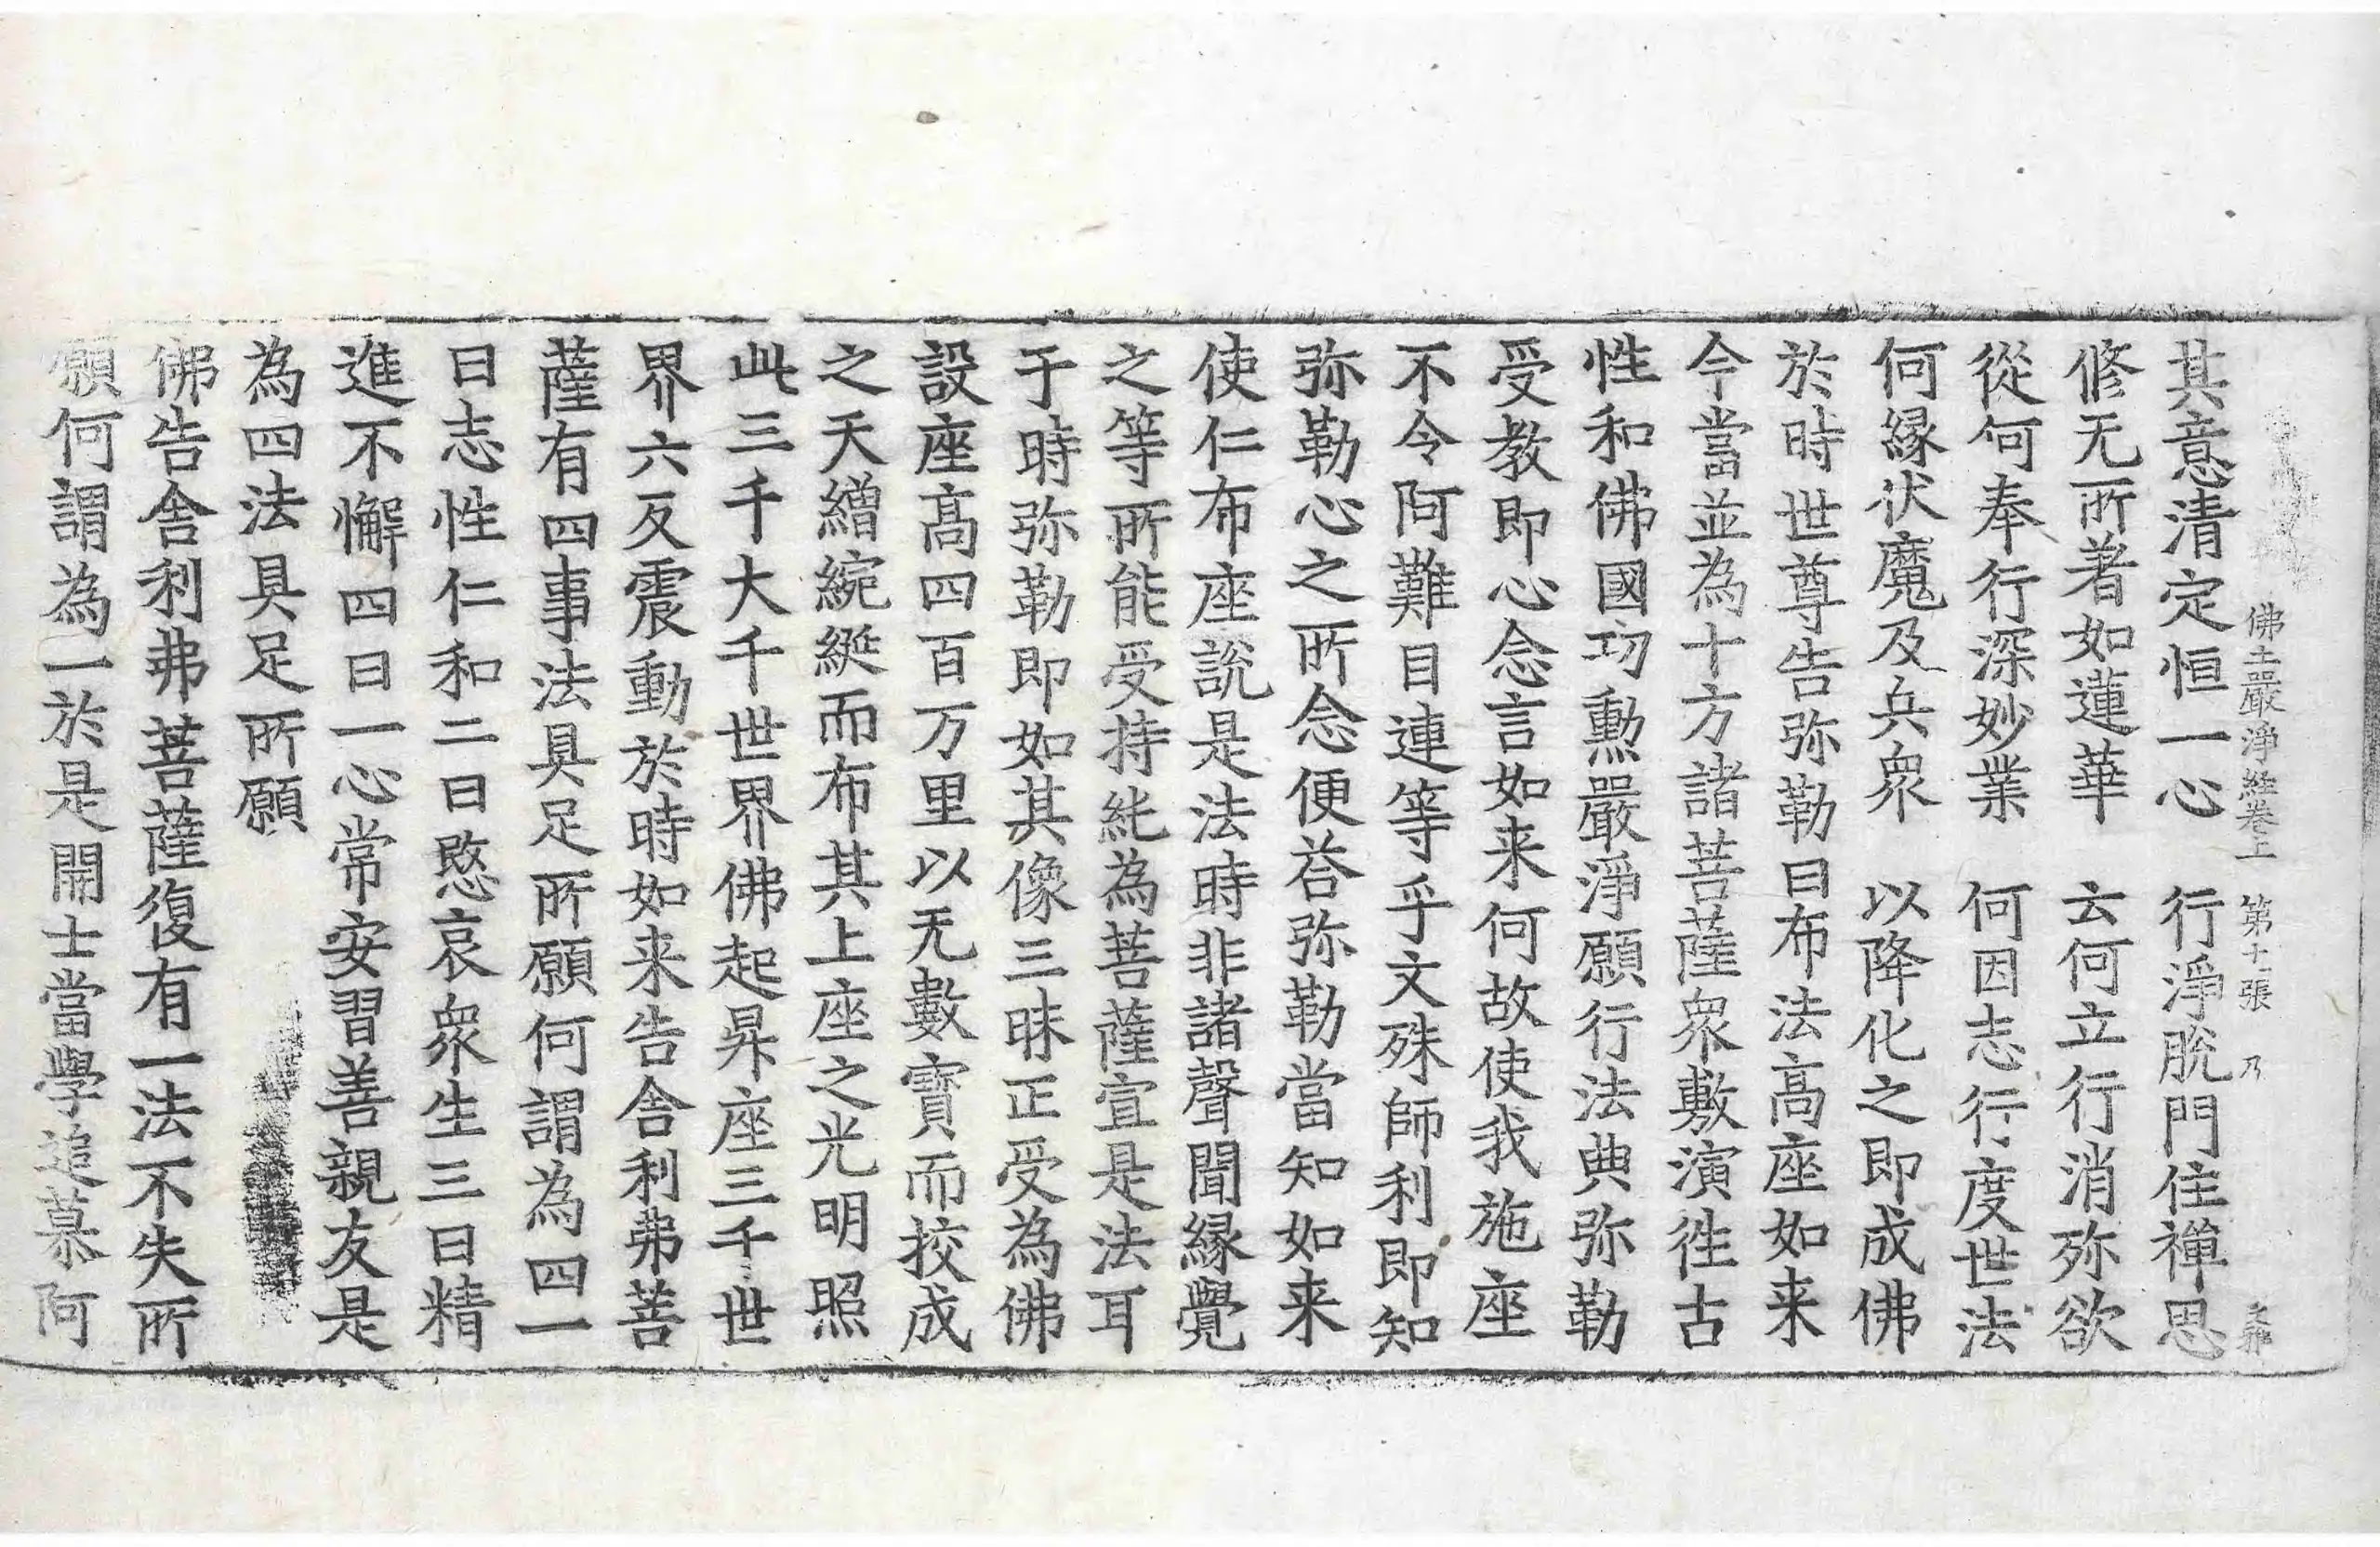 佛土嚴淨經卷上 第十一張 乃
其意清定恒一心 行淨脫門住禪思
修无所著如蓮華 云何立行消殄欲
從何奉行深妙業 何因志行度世法
何緣伏魔及兵衆 以降化之即成佛
於時世尊告弥勒曰布法高座如来
今當並為十方諸菩薩衆敷演徃古
性和佛國功勲嚴淨願行法典弥勒
受教即心念言如来何故使我施座
不令阿難目連等乎文殊師利即知
弥勒心之所念便荅弥勒當知如来
使仁布座說是法時非諸聲聞緣覺
之等所能受持能為菩薩宣是法耳
于時弥勒即如其像三昧正受為佛
設座髙四百万里以无數寳而挍成
之天繒綩綖而布其上座之光明照
此三千大千世界佛起昇座三千世
界六反震動於時如来告舍利弗菩
薩有四事法具足所願何謂為四一
曰志性仁和二曰愍哀衆生三曰精
進不懈四曰一心常安習善親友是
為四法具足所願
佛告舍利弗菩薩復有一法不失所
願何謂為一於是開士當學追慕阿